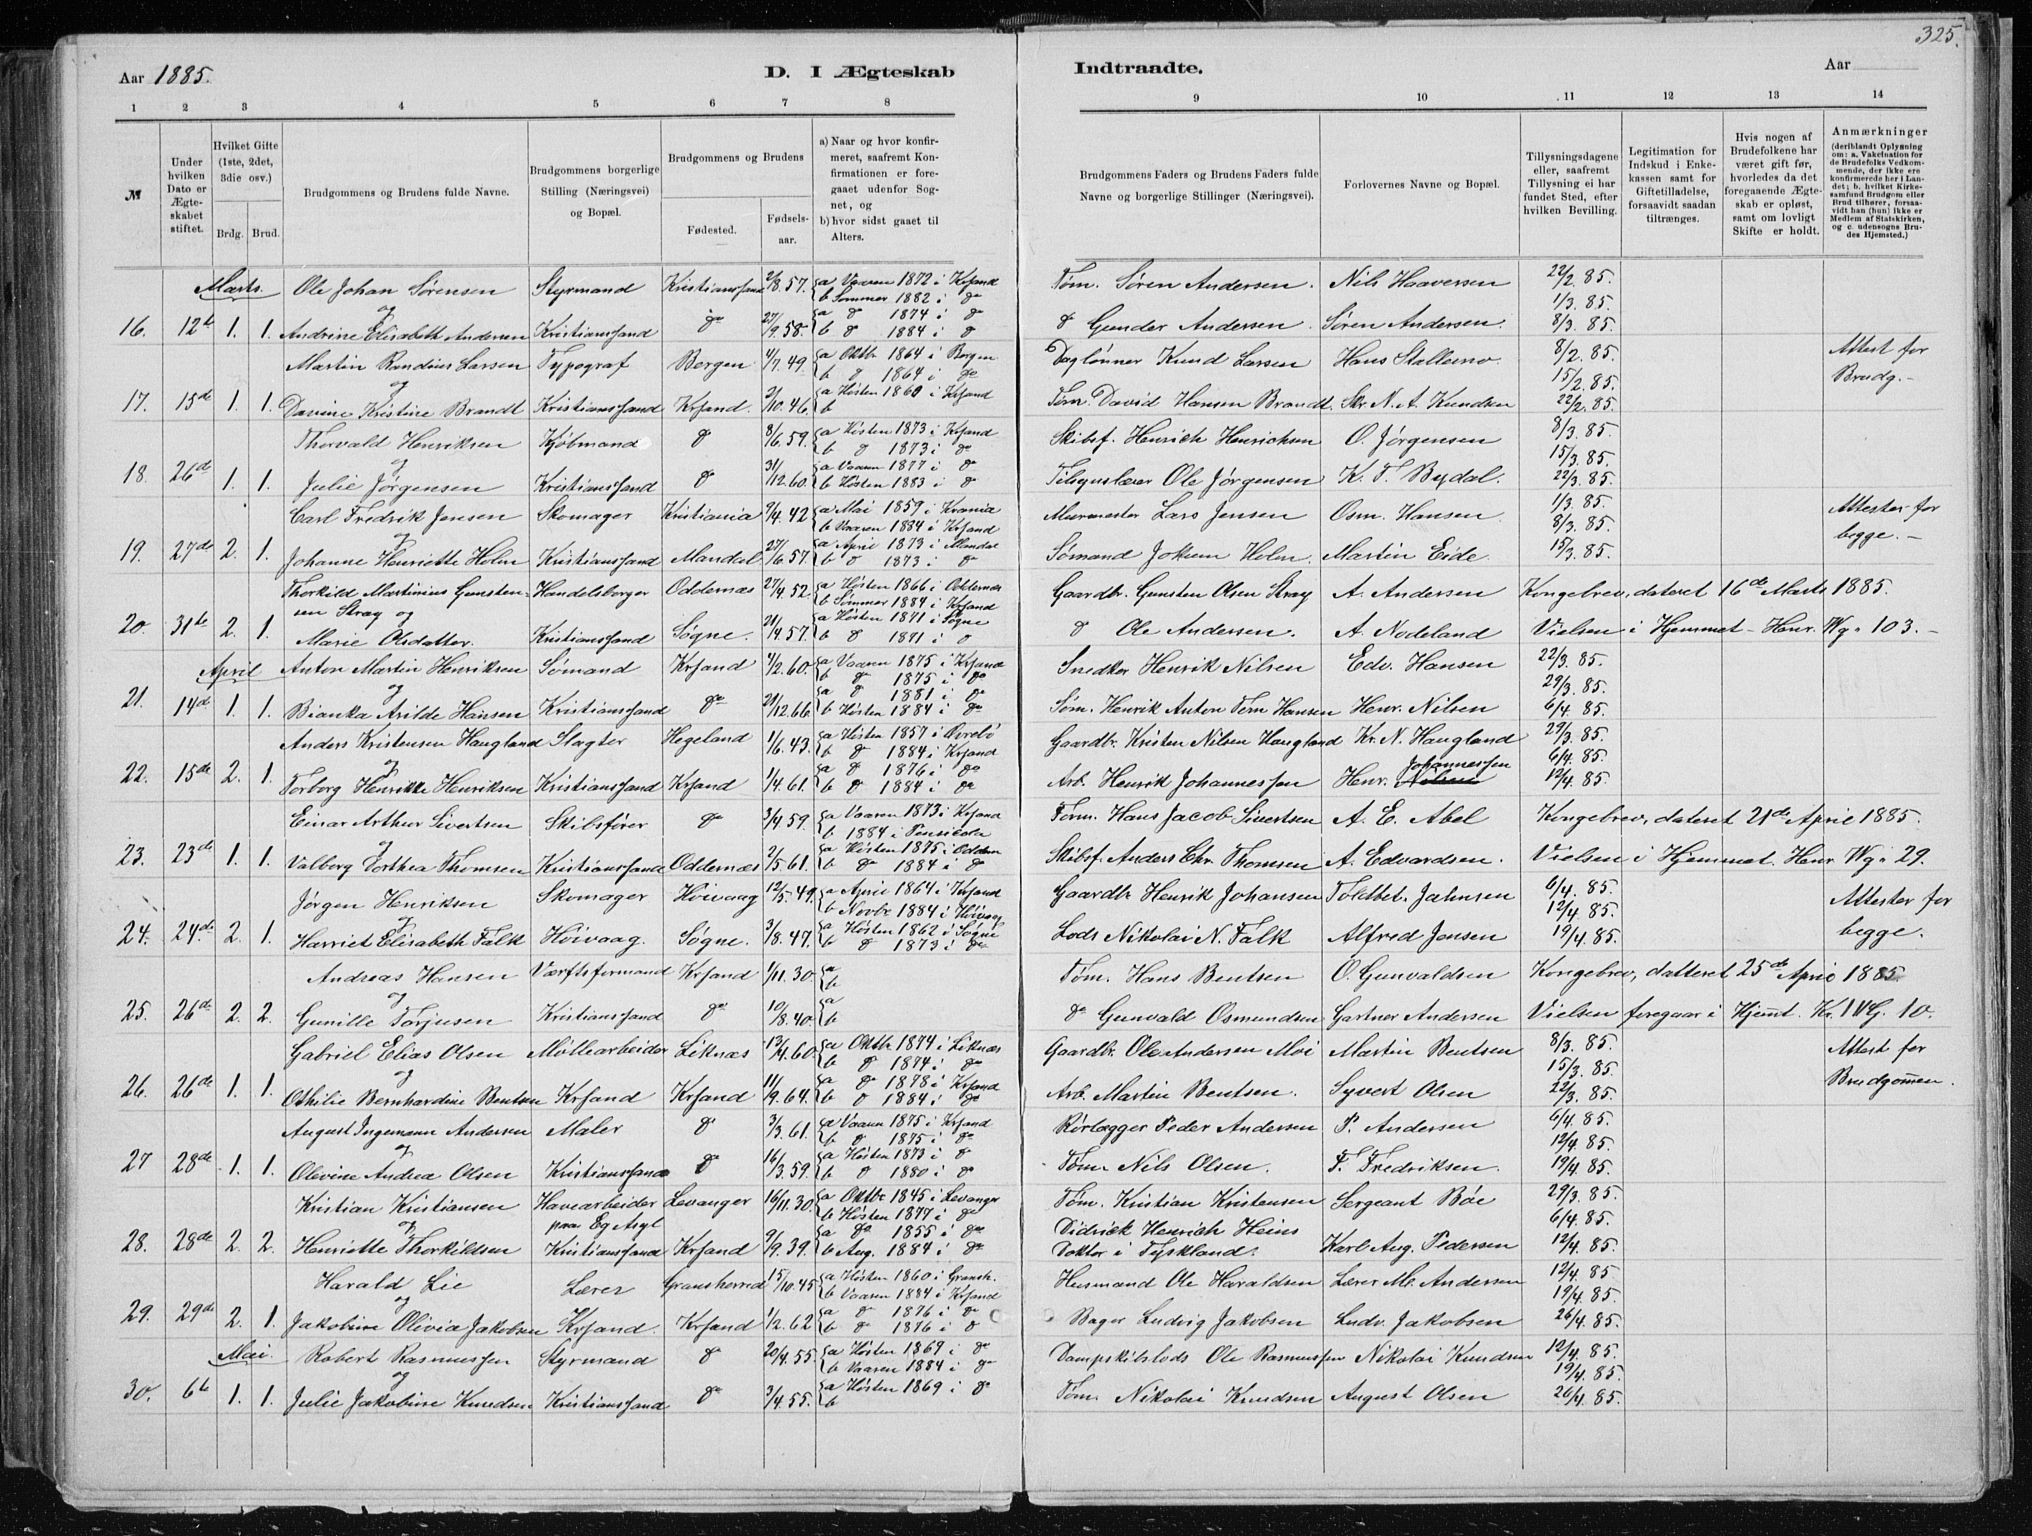 325.
Aar 1885.
D. I Ægteskab
Indtraadte.
Aar
1 2 3 4 5 6 7 8 9 10 11 12 13 14
№
Under hvilken Dato er Ægteskabet stiftet.
Hvilket Gifte (1ste, 2det, 3die osv.)
Brdg. Brud.
Brudgommens og Brudens fulde Navne.
Brudgommens borgerlige Stilling (Næringsvei) og Bopæl.
Brudgommens og Brudens
Fødested.
Fødselsaar.
a) Naar og hvor konfirmeret, saafremt Konfirmationen er foregaaet udenfor Sognet, og
b) hvor sidst gaaet til Alters.
Brudgommens Faders og Brudens Faders fulde Navne og borgerlige Stillinger (Næringsvei).
Forlovernes Navne og Bopæl.
Tillysningsdagene eller, saafremt Tillysning ei har fundet Sted, efter hvilken Bevilling.
Legitimation for Indskud i Enkekassen samt for Giftetilladelse, forsaavidt saadan tiltrænges.
Hvis nogen af Brudefolkene har været gift før, hvorledes da det foregaaende Ægteskab er opløst, samt om lovligt Skifte er holdt.
Anmærkninger (deriblandt Oplysning om: a. Vakcination for de Brudefolks Vedkommende, der ikke ere konfirmerede her i Landet; b. hvilket Kirkesamfund Brudgom eller Brud tilhører, forsaavidt han (hun) ikke er Medlem af Statskirken, og c. udensogns Brudes Hjemsted.)
Marts. Ole Johan Sørensen Styrmand Kristianssand 2/8.57. a Vaaren 1872 i Krsand b Sommer 1882 i do Tøm. Søren Andersen Nils Haaversen 22/2.85. 1/3.85.
og
16. 12te 1. 1. Andrine Elisabeth Andersen Kristianssand do 27/9.58. a do 1874 i do b do 1884 i do do Gunder Andersen. Søren Andersen. 8/3.85.
Martin Randius Larsen Typograf Bergen 4/7.49. a Oktbr 1864 i Bergen b do 1864 i do Daglønner Knud Larsen Hans Stallemo 8/2.85. 15/2.85. Attest for Brudg.-
og
17. 15de 1. 1. Davine Kristine Brandt Kristianssand Krsand. 2/10.46. a Høsten 1860 i Krsand b Tøm. David Hansen Brandt. Skr. N. A. Knudsen 22/2.85.
Thorvald Henriksen Kjøbmand do 8/6.59. a Høsten 1873 i Krsand b do 1873 i do Skibsf. Henrich Henrichsen O. Jørgensen 8/3.85. 15/3.85.
og
18. 26de 1. 1. Julie Jørgensen Kristianssand do 31/12.60. a Vaaren 1877 i do b Høsten 1883 i do Tilsynslærer Ole Jørgensen K. T. Bydal. 22/3.85.
Carl Fredrik Jensen Skomager Kristiania 9/4.42 a Mai 1859 i Krania b Vaaren 1884 i Krsand Murmester Lars Jensen Osm. Hansen. 1/3.85. 8/3.85. Attester for begge.-
og
19. 27de 2. 1. Johanne Henriette Holm Kristianssand Mandal 27/6.57. a April 1873 i Mandal b do 1873 i do Sømand Jokum Holm. Martin Eide. 15/3.85.
Thorkild Martinius Gunstensen Stray og Handelsborger Oddernæs 27/4.52. a Høsten 1866 i Oddernæs b Sommer 1884 i Krsand Gaardbr. Gunsten Olsen Stray A. Andersen Kongebrev, dateret 16de Marts 1885.
20. 31te 2. 1. Marie Olsdatter. Kristianssand Søgne. 21/4.57. a Høsten 1871 i Søgne b do 1871 i do do Ole Andersen. A. Nodeland Vielsen i Hjemmet- Henr. Wg. 103.-
April Anton Martin Henriksen Sømand Krsand 9/2.60. a Vaaren 1875 i Krsand b do 1875 i do Snedker Henrik Nilsen Edv. Hansen 22/3.85. 29/3.85.
og
21. 14de 1. 1. Bianka Arilde Hansen Kristianssand do 21/12.66. a do 1881 i do b Høsten 1884 i do Søm. Henrik Anton Tern Hansen Henr. Nilsen 6/4.85.
Anders Kristensen Haugland Slagter Hegeland 1/6.43. a Høsten 1857 i Øvrebø b do 1884 i Krsand Gaardbr. Kristen Nilsen Haugland Kr. N. Haugland 29/3.85. 6/4.85.
og
22. 15de 2. 1. Torborg Henrikke Henriksen Kristianssand Krsand 1/4.61. a do 1876 i do b do 1884 i do Arb. Henrik Johannessen Henr. Nilsen Johannessen 12/4.85.
Einar Arthur Sivertsen Skibsfører do 3/4.59. a Vaaren 1873 i Krsand b 1884 i Pensicola Tøm. Hans Jacob Sivertsen A. E. Abel Kongebrev, dateret 21de April 1885.
og
23. 23de 1. 1. Valborg Torthea Thomsen Kristianssand Oddernæs 2/5.61. a Høsten 1875 i Oddern b do 1884 i do Skibsf. Anders Chr. Thomsen A. Edvardsen. Vielsen i Hjemmet. Henr. Wg. 29.
Jørgen Henriksen Skomager Høivaag 12/5.49. a April 1864 i Krsand b Novbr 1884 i Høivaag Gaardbr Henrik Johansen Toldbet. Jahnsen 6/4.85. 12/4.85. Attester for begge.
og
24. 24de 2. 1. Harriet Elisabeth Falk Høivaag. Søgne. 3/8.47. a Høsten 1862 i Søgne b do 1873 i do Lods Nikolai N. Falk Alfred Jensen 19/4.85.
Andreas Hansen Værftsformand Krsand 1/11.30. a b Tøm. Hans Bentsen O. Gunvaldsen Kongebrev, datteret 25de April 1885
og
25. 26de 2. 2. Gunille Torjusen Kristianssand do 10/8.40. a b do Gunvald Osmundsen Gartner Andersen Vielsen foregaar i Hjemt. Kr. IV G. 10.
Gabriel Elias Olsen Møllearbeider Liknæs 13/4.60. a Oktbr 1874 i Liknæs b do 1874. i do Gaardbr. Ole Andersen Moi Martin Bentsen 8/3.85. 15/3.85. Attest for Brudgomen.
og
26. 26de 1. 1. Othilie Bernhardine Bentsen Krsand Krsand 11/9.64. a do 1878 i Krsand b do 1884 i do Arb. Martin Bentsen. Syvert Olsen 22/3.85.
August Ingemann Andersen Maler do 3/3.61. a Vaaren 1875 i Krsand b do 1875 i do Rørlægger Peder Andersen P. Andersen 6/4.85. 12/4.85.
og
27 28de 1. 1. Olevine Andrea Olsen Kristianssand do 16/3.59. a Høsten 1873 i do b do 1880 i do Tøm. Nils Olsen. F. Fredriksen. 19/4.85.
Kristian Kristiansen Havearbeider paa Eg Asyl Levanger 16/11.30. a Oktbr 1845 i Levanger b Høsten 1877 i do Tøm. Kristian Kristensen Sergeant Bøe 29/3.85. 6/4.85.
og
28. 28de 2. 2. Henriette Thorkildsen Kristianssand Krsand 9/9.39. a do 1855 i do b Aug. 1884 i do Didrick Henrich Heins Doktor i Tyskland. Karl Aug. Pedersen 12/4.85.
Harald Lie Lærer Gransherred 15/10.45 a Høsten 1860 i Gransh. b Vaaren 1884 i Krsand Husmand Ole Haraldsen Lærer M. Andersen 12/4.85 19/4.85.
og
29. 29de 2. 1. Jakobine Olivia Jakobsen Krsand. Krsand 1/2.62 a do 1876 i do b do 1876 i do Bager Ludvig Jakobsen Ludv. Jakobsen 26/4.85
Mai. Robert Rasmussen Styrmand do 20/4.55. a Høsten 1869 i do b Vaaren 1884 i do Dampskibslods Ole Rasmussen Nikolai Knudsen 12/4.85. 19/4.85.
og
30. 6te 1. 1. Julie Jakobine Knudsen Kristianssand do 3/4.55. a Høsten 1869 i do b Tøm. Nikolai Knudsen August Olsen 26/4.85.